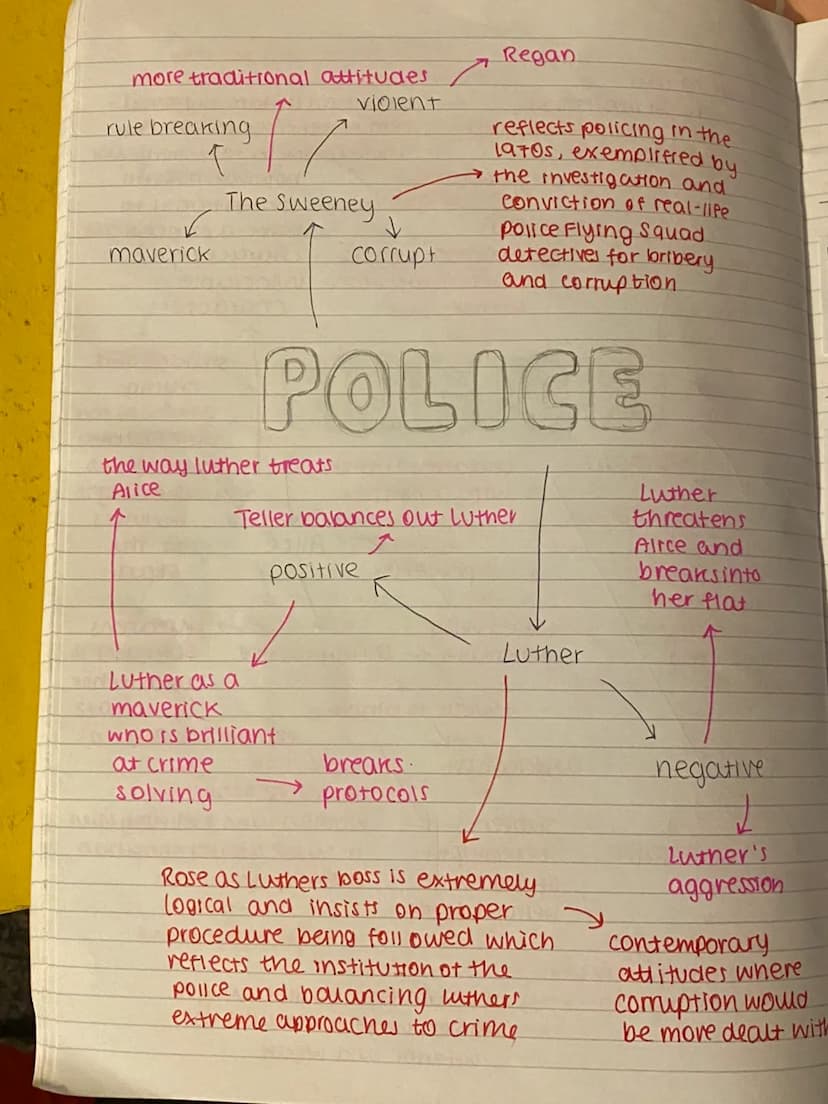 Regan
more traditional attitudes
violent
rule breaking
reflects policing in the
1970s, exemplified by
the investigation and
conviction of real-life
police Flying Squad
detectives for bribery
and corruption
The Sweeney
maverick
corrupt
POLICE
the way luther treats
Alice
Teller balances out Luther
positive
Luther
threatens
Alice and
breaks into
her flat
Luther
Luther as a
maverick
who is brilliant
at crime
solving
breaks
protocols
negative
Luther's
aggression
Rose as Luthers boss is extremely
logical and insists on proper
procedure being followed which
reflects the institution of the
police and balancing luthers
extreme approaches to crime
contemporary
attitudes where
corruption would
be more dealt with